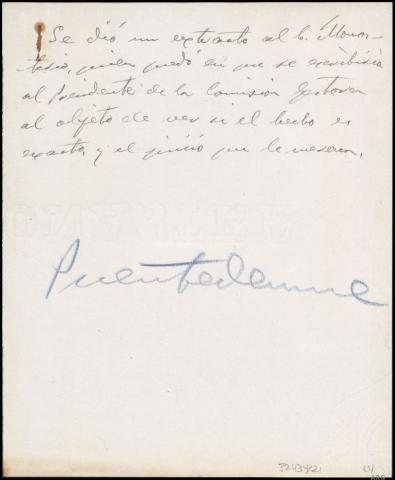 Se dió un extracto al C. Monas-
terio, quien quedó en que se escribiría
al Presidente de la Comisión Gestora
al objeto de ver si el hecho es
exacto, y el juicio que le merecen.
Puentedeume